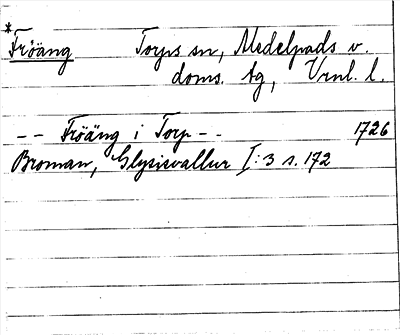 *
Fröäng Torps sn, Medelpads v.
doms. tg, Vrnl. l.
-- Fröäng i Torp -- 1726
Broman, Glysisvallur I:3 s. 172